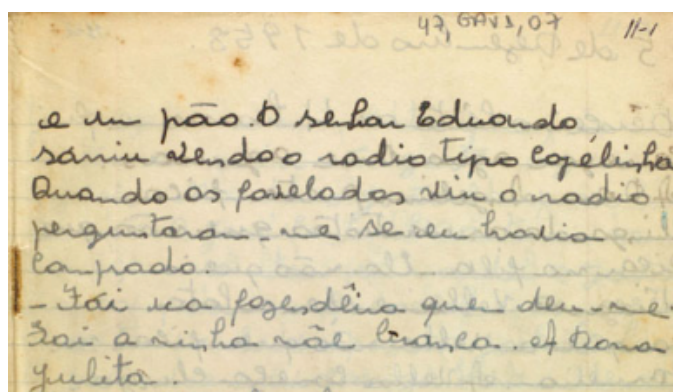 47, GAV1, 07
11-1
e um pão. O senhor Eduardo,
sorriu vendo o radio tipo Capélinha
Quando os favelados viu o radio
perguntaram-me se eu havia
comprado.
- Foi uma fazendêira quem deu-me.
Foi a minha mãe branca. A Dona
Julita.